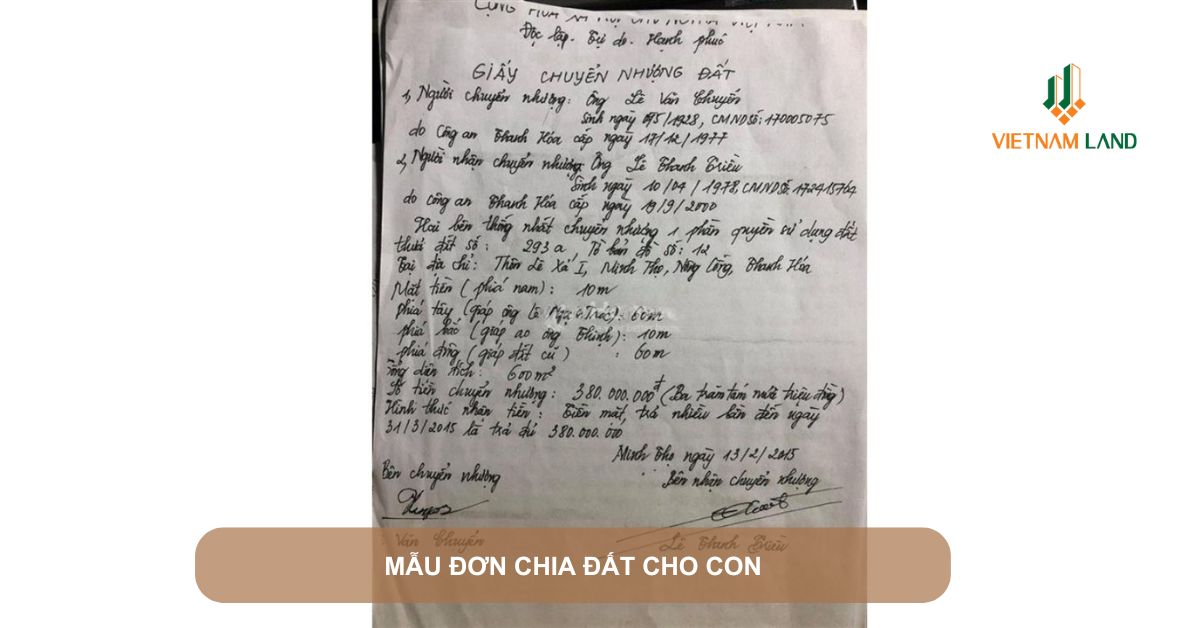 CỘNG HÒA XÃ HỘI CHỦ NGHĨA VIỆT NAM
Độc lập - Tự do - Hạnh phúc
GIẤY CHUYỂN NHƯỢNG ĐẤT
1, Người chuyển nhượng: Ông Lê Văn Chuyến
Sinh ngày /1928, CMND Số: 170005075
do Công an Thanh Hóa cấp ngày 17/12/1977
2, Người nhận chuyển nhượng: Ông Lê Thanh Triều
Sinh ngày 10/04/1978, CMND Số: 172415764
do công an Thanh Hóa cấp ngày 19/9/2000
Hai bên thống nhất chuyển nhượng 1 phần quyền sử dụng đất
thửa đất số: 293a, Tờ bản đồ số: 12
Tại địa chỉ: Thôn Lê Xá I, Minh Thọ, Nông Cống, Thanh Hóa
Mặt tiền (phía nam): 10m
phía tây (giáp ông Lê): 60m
phía bắc (giáp ao ông Thịnh): 10m
phía đông (giáp đất cũ): 60m
Tổng diện tích: 600m²
Số tiền chuyển nhượng: 380.000.000đ (Ba trăm tám mươi triệu đồng)
Hình thức nhận tiền: Tiền mặt, trả nhiều lần đến ngày
31/3/2015 là trả đủ 380.000.000
Minh Thọ ngày 13/2/2015
Bên chuyển nhượng Bên nhận chuyển nhượng
Văn Chuyến Lê Thanh Triều
MẪU ĐƠN CHIA ĐẤT CHO CON
VIETNAM LAND